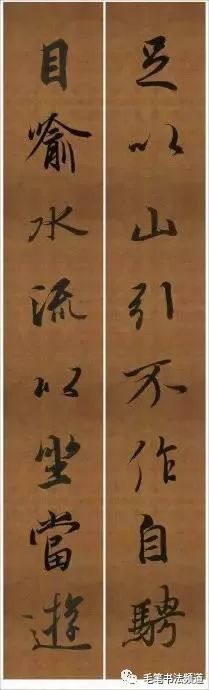 足以山引不作自騁
目喻水流以坐當遊
毛笔书法频道